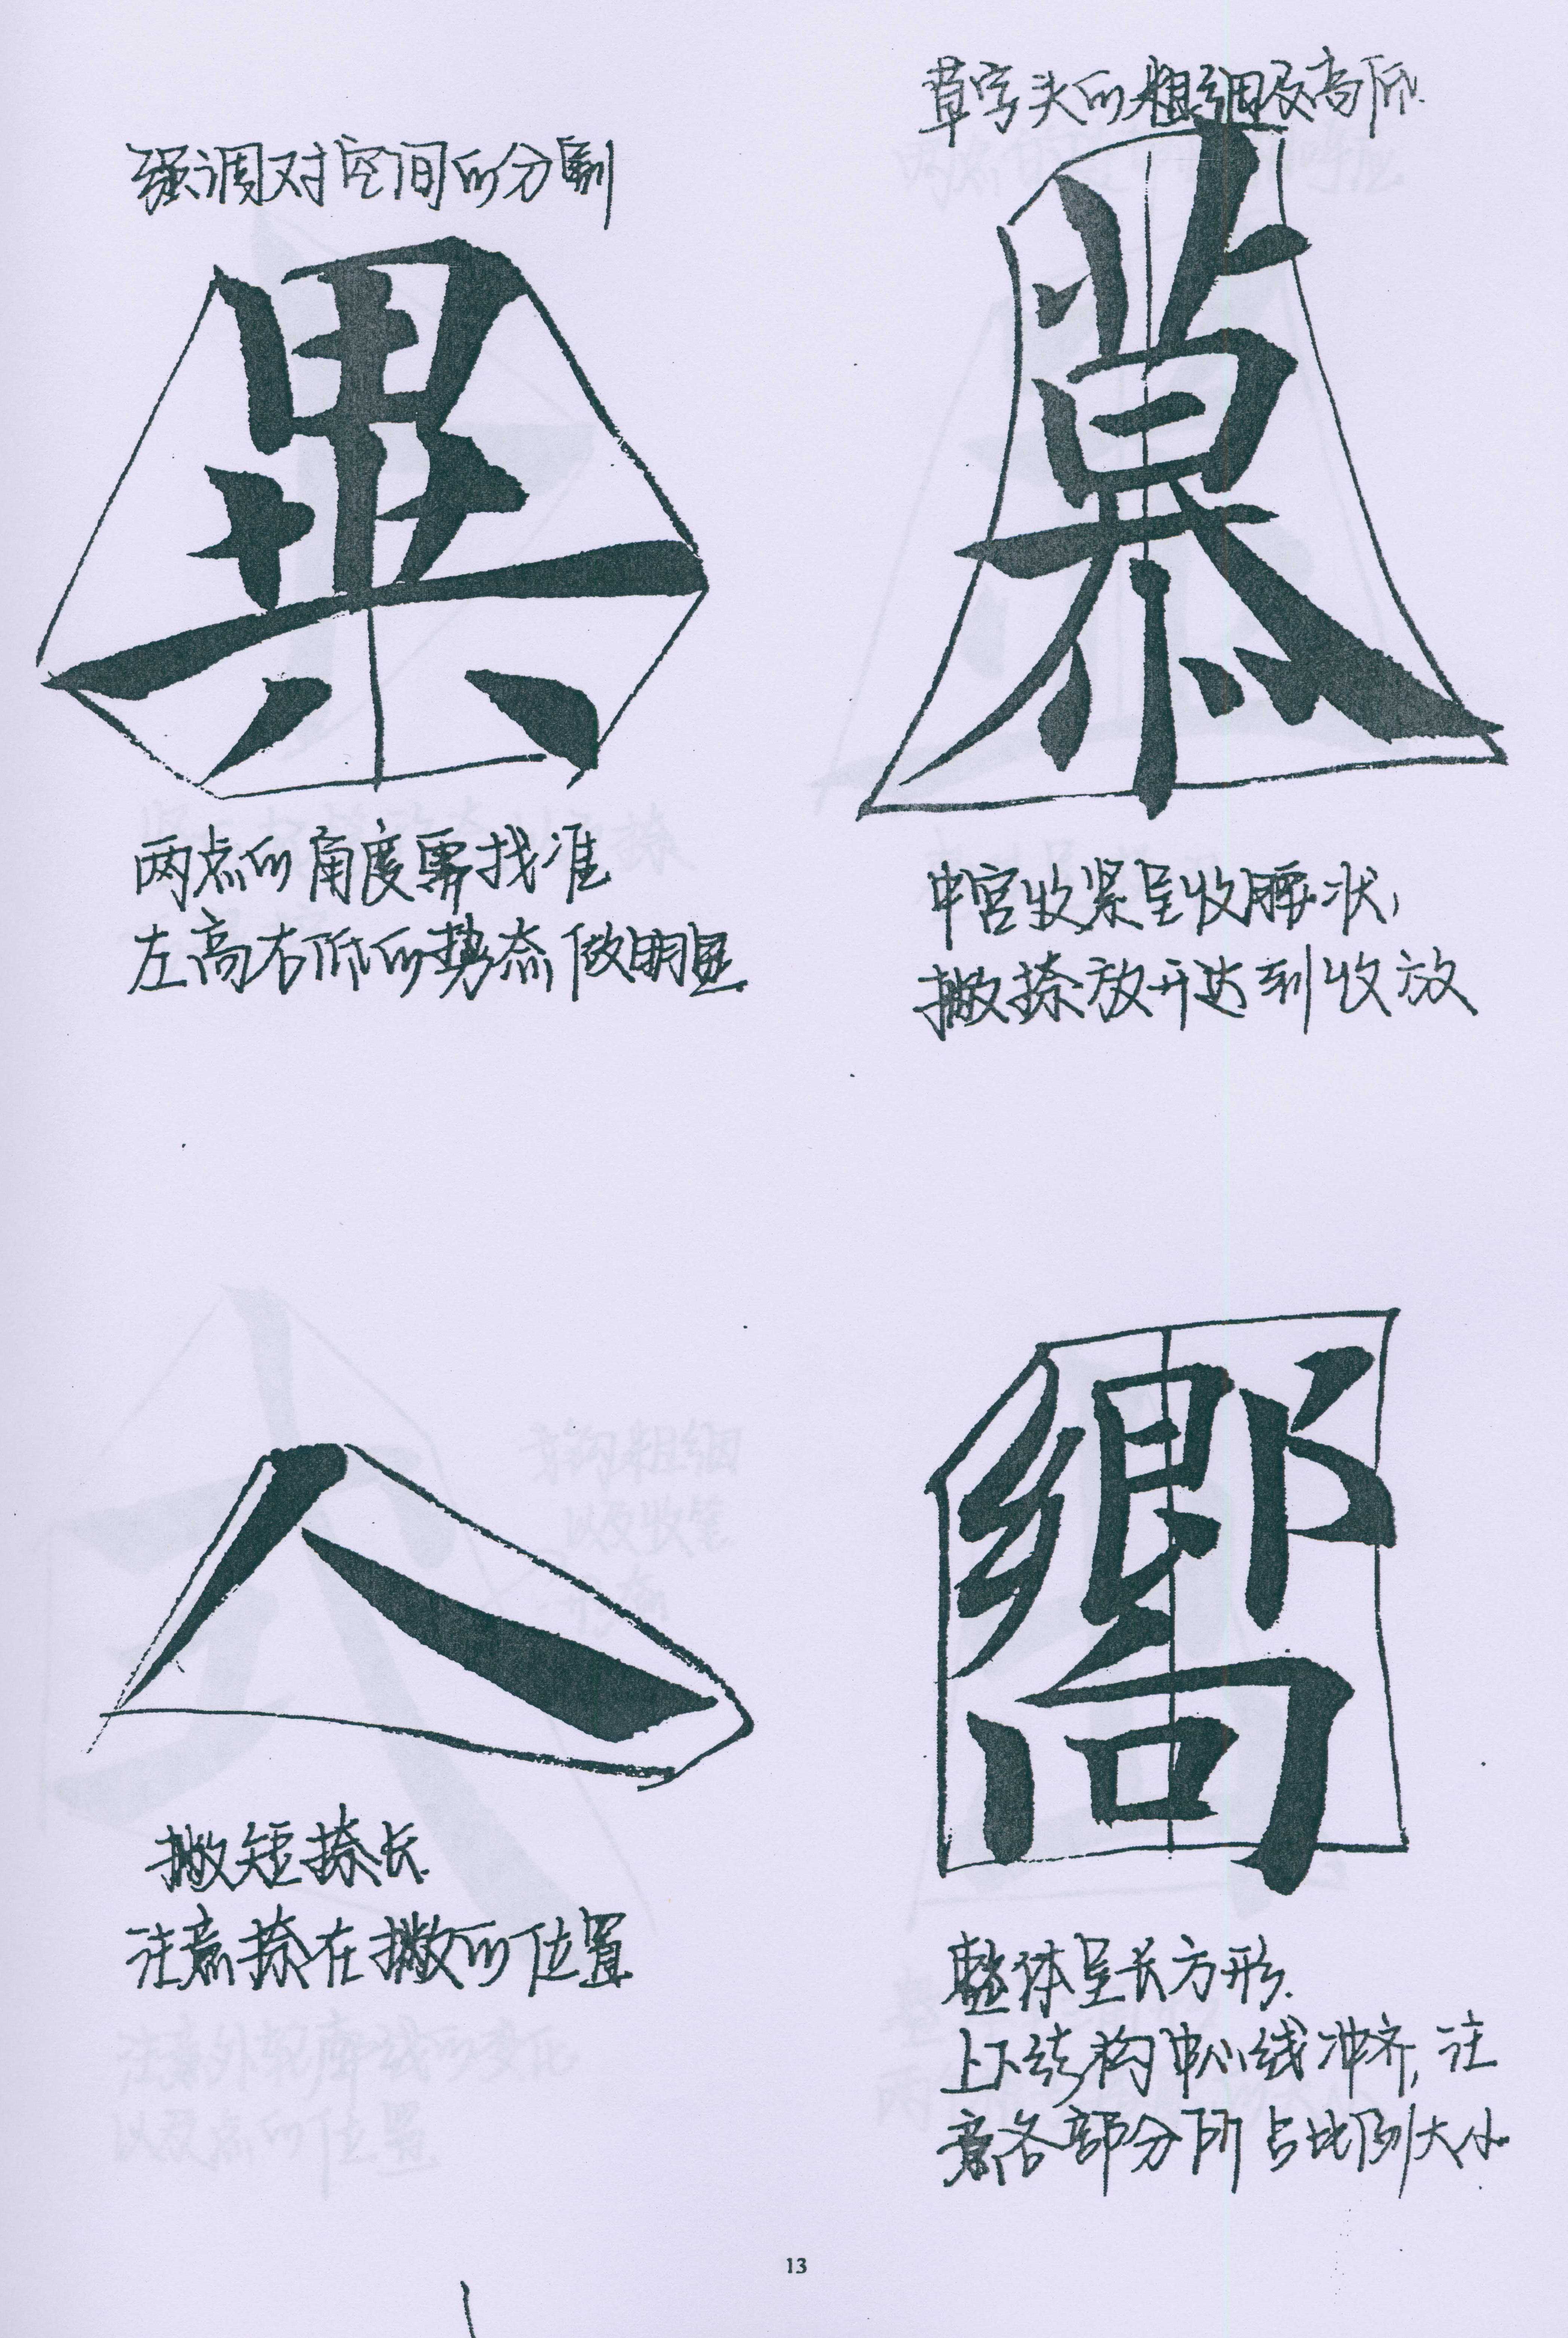 强调对空间的分割
異
两点的角度需找准
左高右低的势态做明显
草字头的粗细及高低
慕
中宫收紧呈收腰状,
撇捺放开达到收放
人
撇短捺长
注意捺在撇的位置
嚮
整体呈长方形.
上下结构中心线冲齐,注
意各部分所占比例大小
13